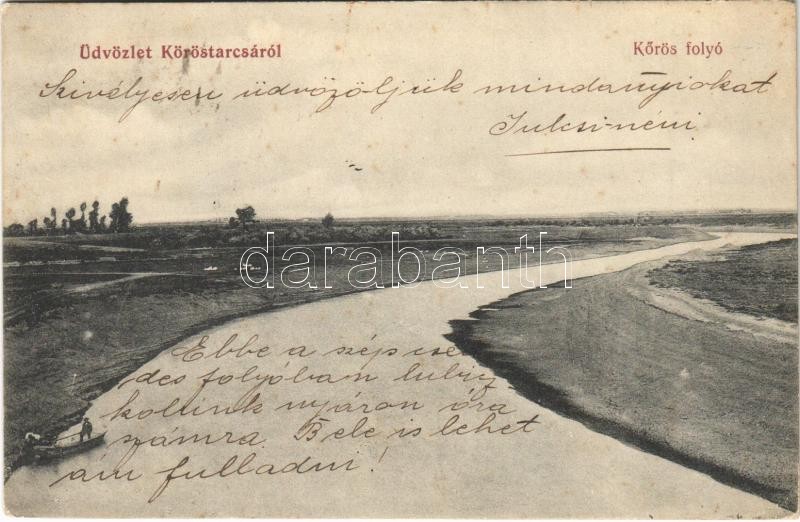 Üdvözlet Köröstarcsáról
Kőrös folyó
Szivélyesen üdvözöljük mindanyiokat
Julcsi-néni
darabanth
Ebbe a szép csen
des folyóban lubiz
koltunk nyáron óra
számra. Bele is lehet
ám fulladni!